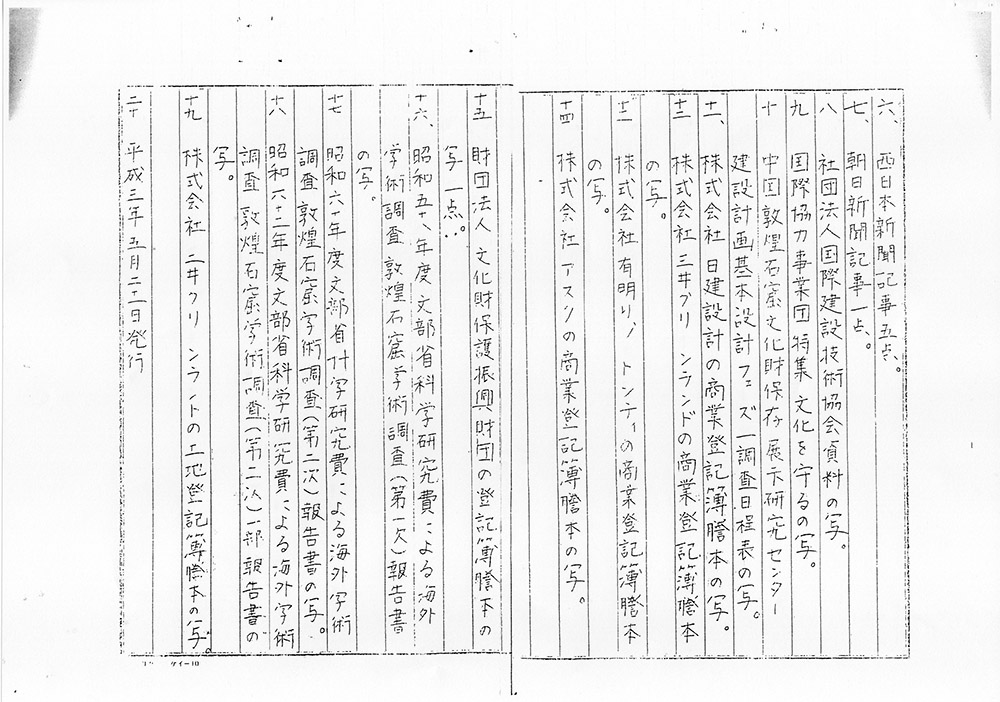 六、 西日本新聞記事五点。
七、 朝日新聞記事一点。
八 社団法人国際建設技術協会資料の写。
九 国際協力事業団特集 文化を守るの写。
十 中国敦煌石窟文化財保存展示研究センター
建設計画基本設計フェーズ一調査日程表の写。
十一、 株式会社日建設計の商業登記簿謄本の写。
十二 株式会社三井グリーンランドの商業登記簿謄本
の写。
十三 株式会社有明リゾートシティの商業登記簿謄本
の写。
十四 株式会社アスクの商業登記簿謄本の写。
十五 財団法人文化財保護振興財団の登記簿謄本の
写一点。
十六、 昭和五十八年度文部省科学研究費による海外
学術調査 敦煌石窟学術調査(第一次)報告書
の写。
十七 昭和六十年度文部省科学研究費による海外学術
調査 敦煌石窟学術調査(第二次)報告書の写。
十八 昭和六十二年度文部省科学研究費による海外学術
調査 敦煌石窟学術調査(第二次)一部報告書の
写。
十九 株式会社三井グリーンランドの土地登記簿謄本の写。
二十 平成三年五月二十二日発行
ケイー10